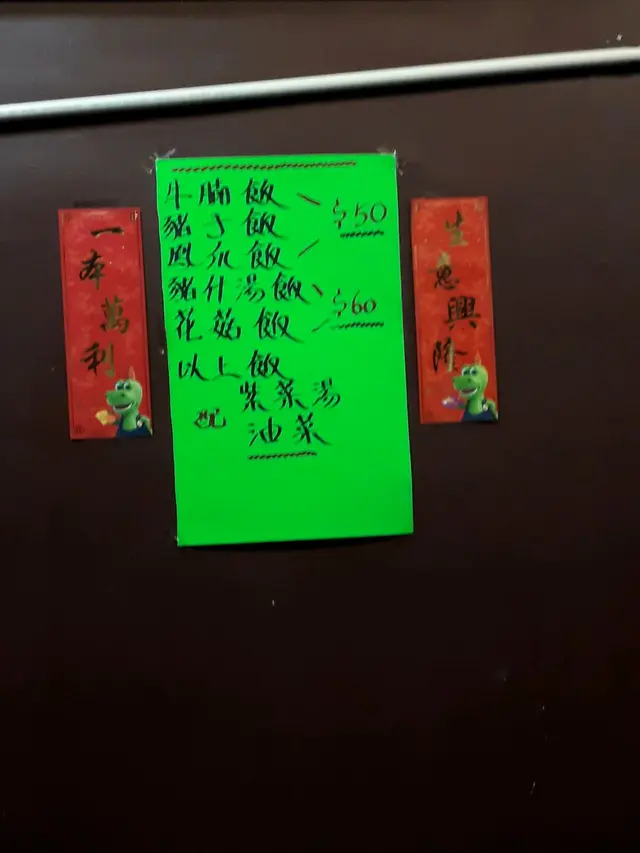 一本萬利
牛腩飯
豬手飯
$50
鳳爪飯
豬什湯飯
$60
花菇飯
以上飯
配
紫菜湯
油菜
生意興隆